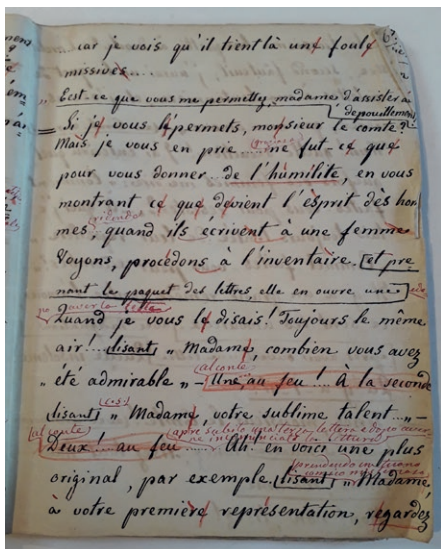 car je vois qu'il tient là une foule
missives....
„ Est-ce que vous me permettez, madame d'assister à
dépouillement
= Si je vous le permets, monsieur le comte?
Mais je vous en prie .... ne fut-ce que
pour vous donner de l'humilité, en vous
montrant ce que devient l'ésprit dès hom
ridendo
mes, quand ils ecrivent à une femme
Voyons, procédons à l'inventaire. (et pre
nant le paquet des lettres, elle en ouvre une
aver la lettera
Quand je vous le disais! Toujours le même
air! ... (lisant) „ Madame, combien vous avez
(al conte)
„ été admirable „ — Une au feu!.... À la seconde
(c. s.)
(lisant) „ Madame, votre sublime talent...„ —
(al conte) (apre subito una terza lettera e dopo aver
ne incominciata la lettura)
Deux! .. au feu .... Ah! en voici une plus
(prendendo
original, par exemple. (lisant) „ Madame,
à votre première représentation, regardez